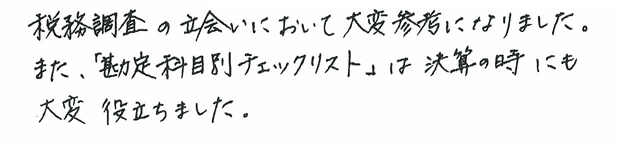 税務調査の立会いにおいて大変参考になりました。
また、「勘定科目別チェックリスト」は決算の時にも
大変役立ちました。